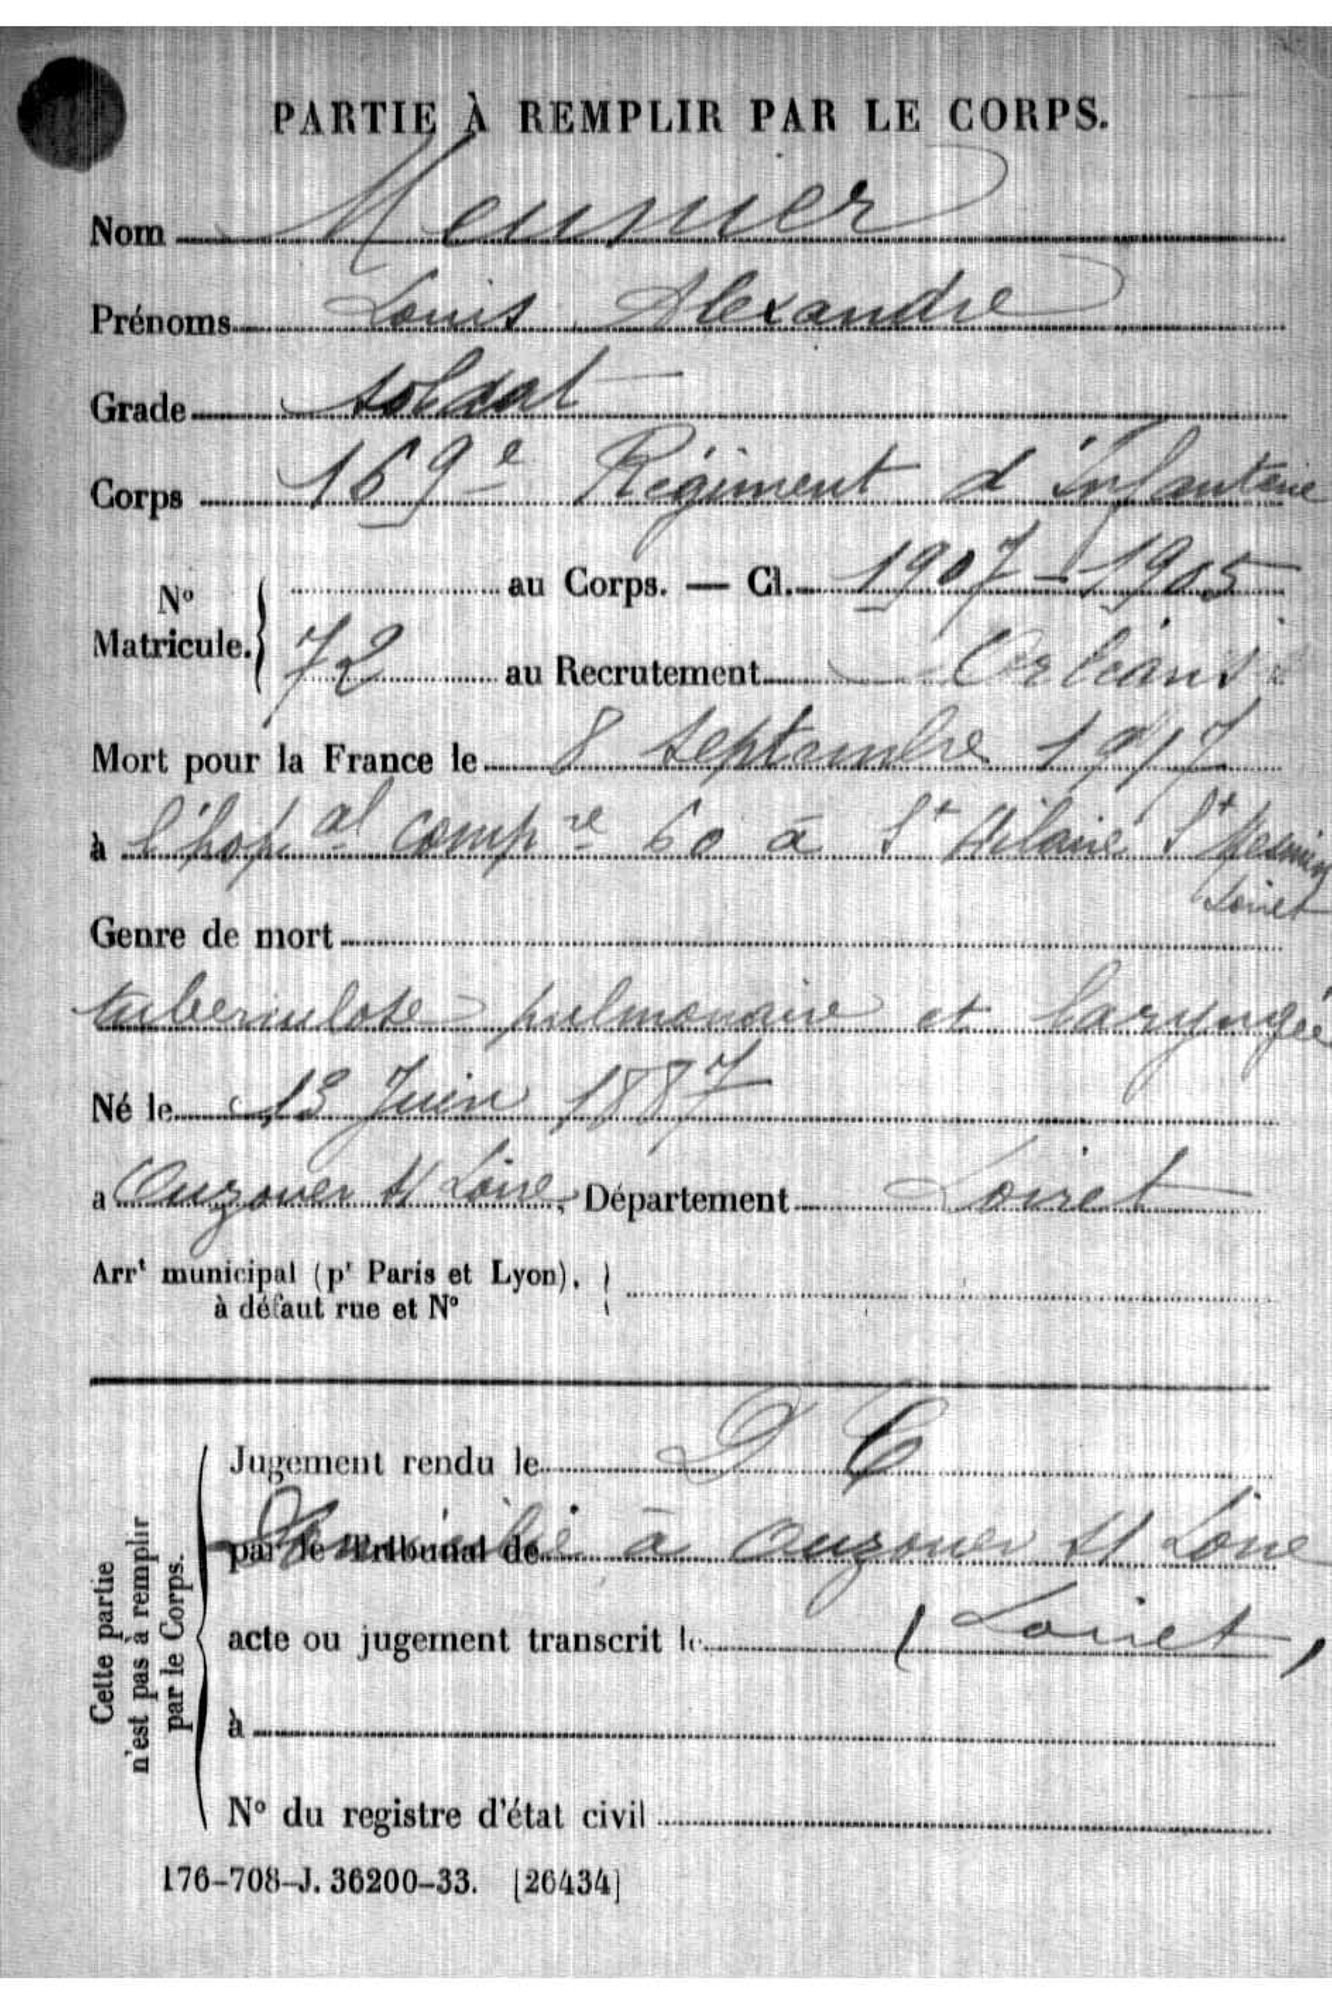 PARTIE À REMPLIR PAR LE CORPS.
Nom Meunier
Prénoms Louis Alexandre
Grade soldat
Corps 169e Régiment d'Infanterie
No Matricule. au Corps. — Cl. 1907 - 1905
72 au Recrutement Orléans
Mort pour la France le 8 septembre 1917
à l'hopal compre 60 à St Hilaire St Mesmin
Loiret
Genre de mort
tuberculose pulmonaire et laryngée
Né le 13 Juin 1887
a Ouzouer s/ Loire. Département Loiret
Arrt municipal (pr Paris et Lyon),
à défaut rue et No
Cette partie n'est pas à remplir par le Corps.
Jugement rendu le D C
par le Tribunal de à Ouzouer s/ Loire
acte ou jugement transcrit le (Loiret)
à
No du registre d'état civil
176-708-J. 36200-33. [26434]